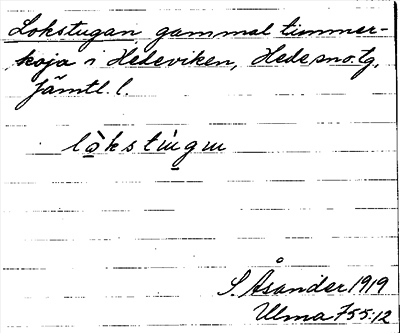 Lokstugan gammal timmer-
koja i Hedeviken, Hede sn o. tg,
Jämtl. l.
S. Åsander 1919
Ulma 755:12